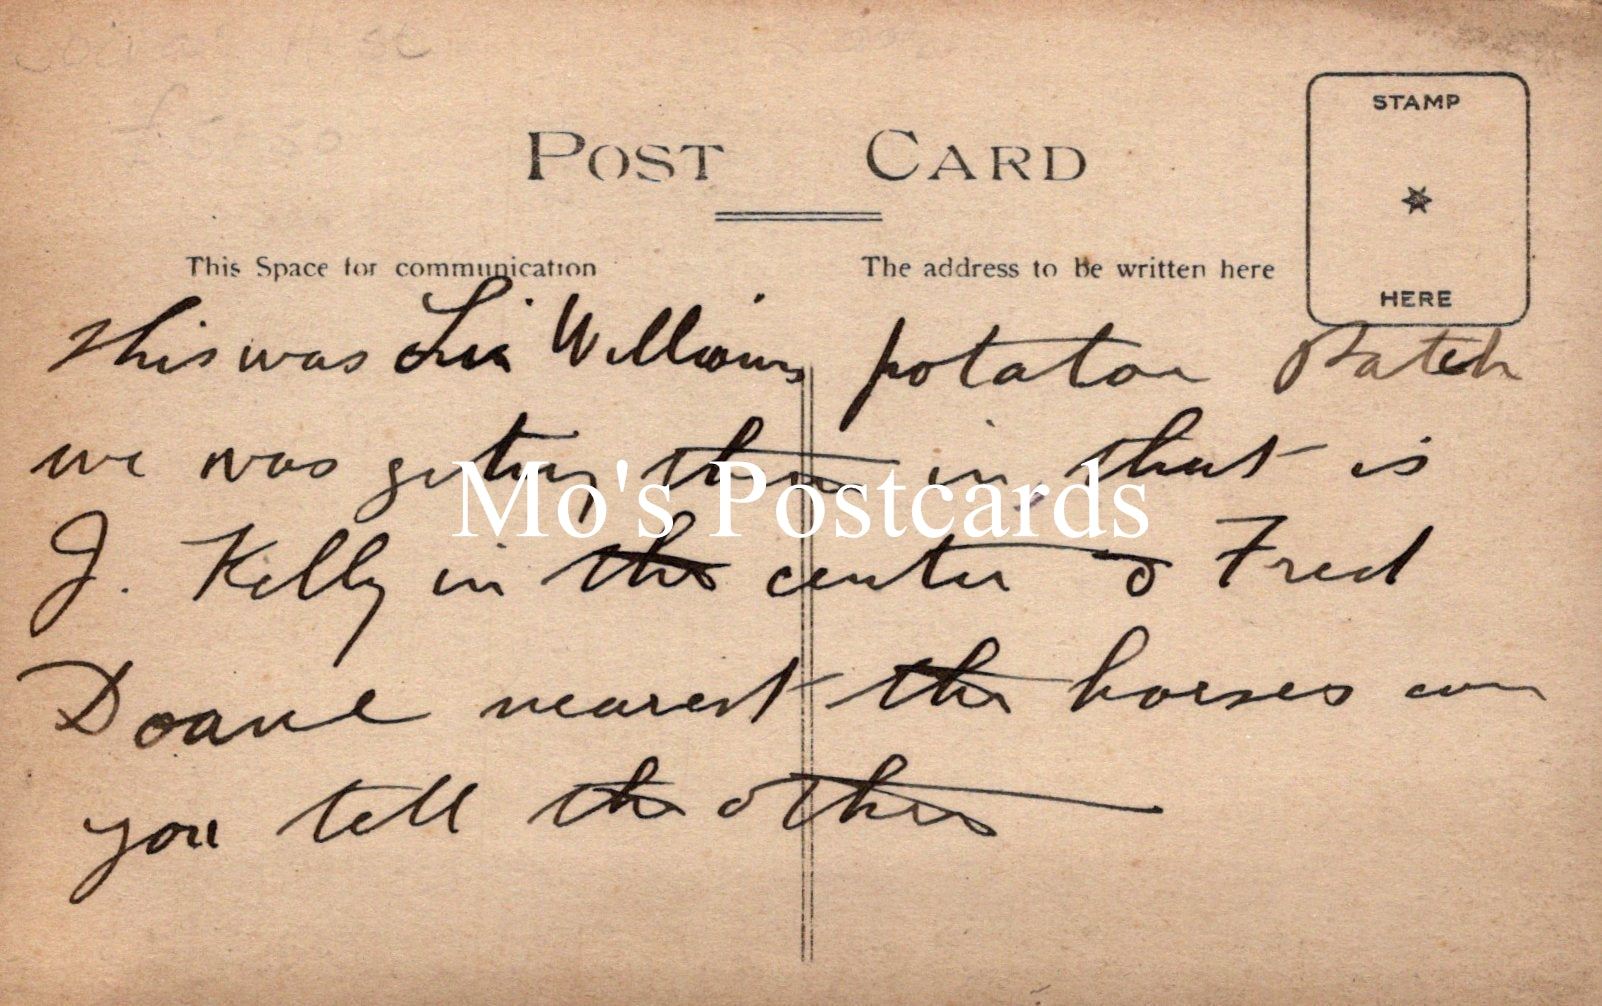 POST CARD
STAMP
HERE
This Space for communication
The address to be written here
this was Williams potatoe Patch
we was geting them in, that is
J. Kelly in the center & Fred
Doane nearest the horses can
you tell the others
Mo's Postcards